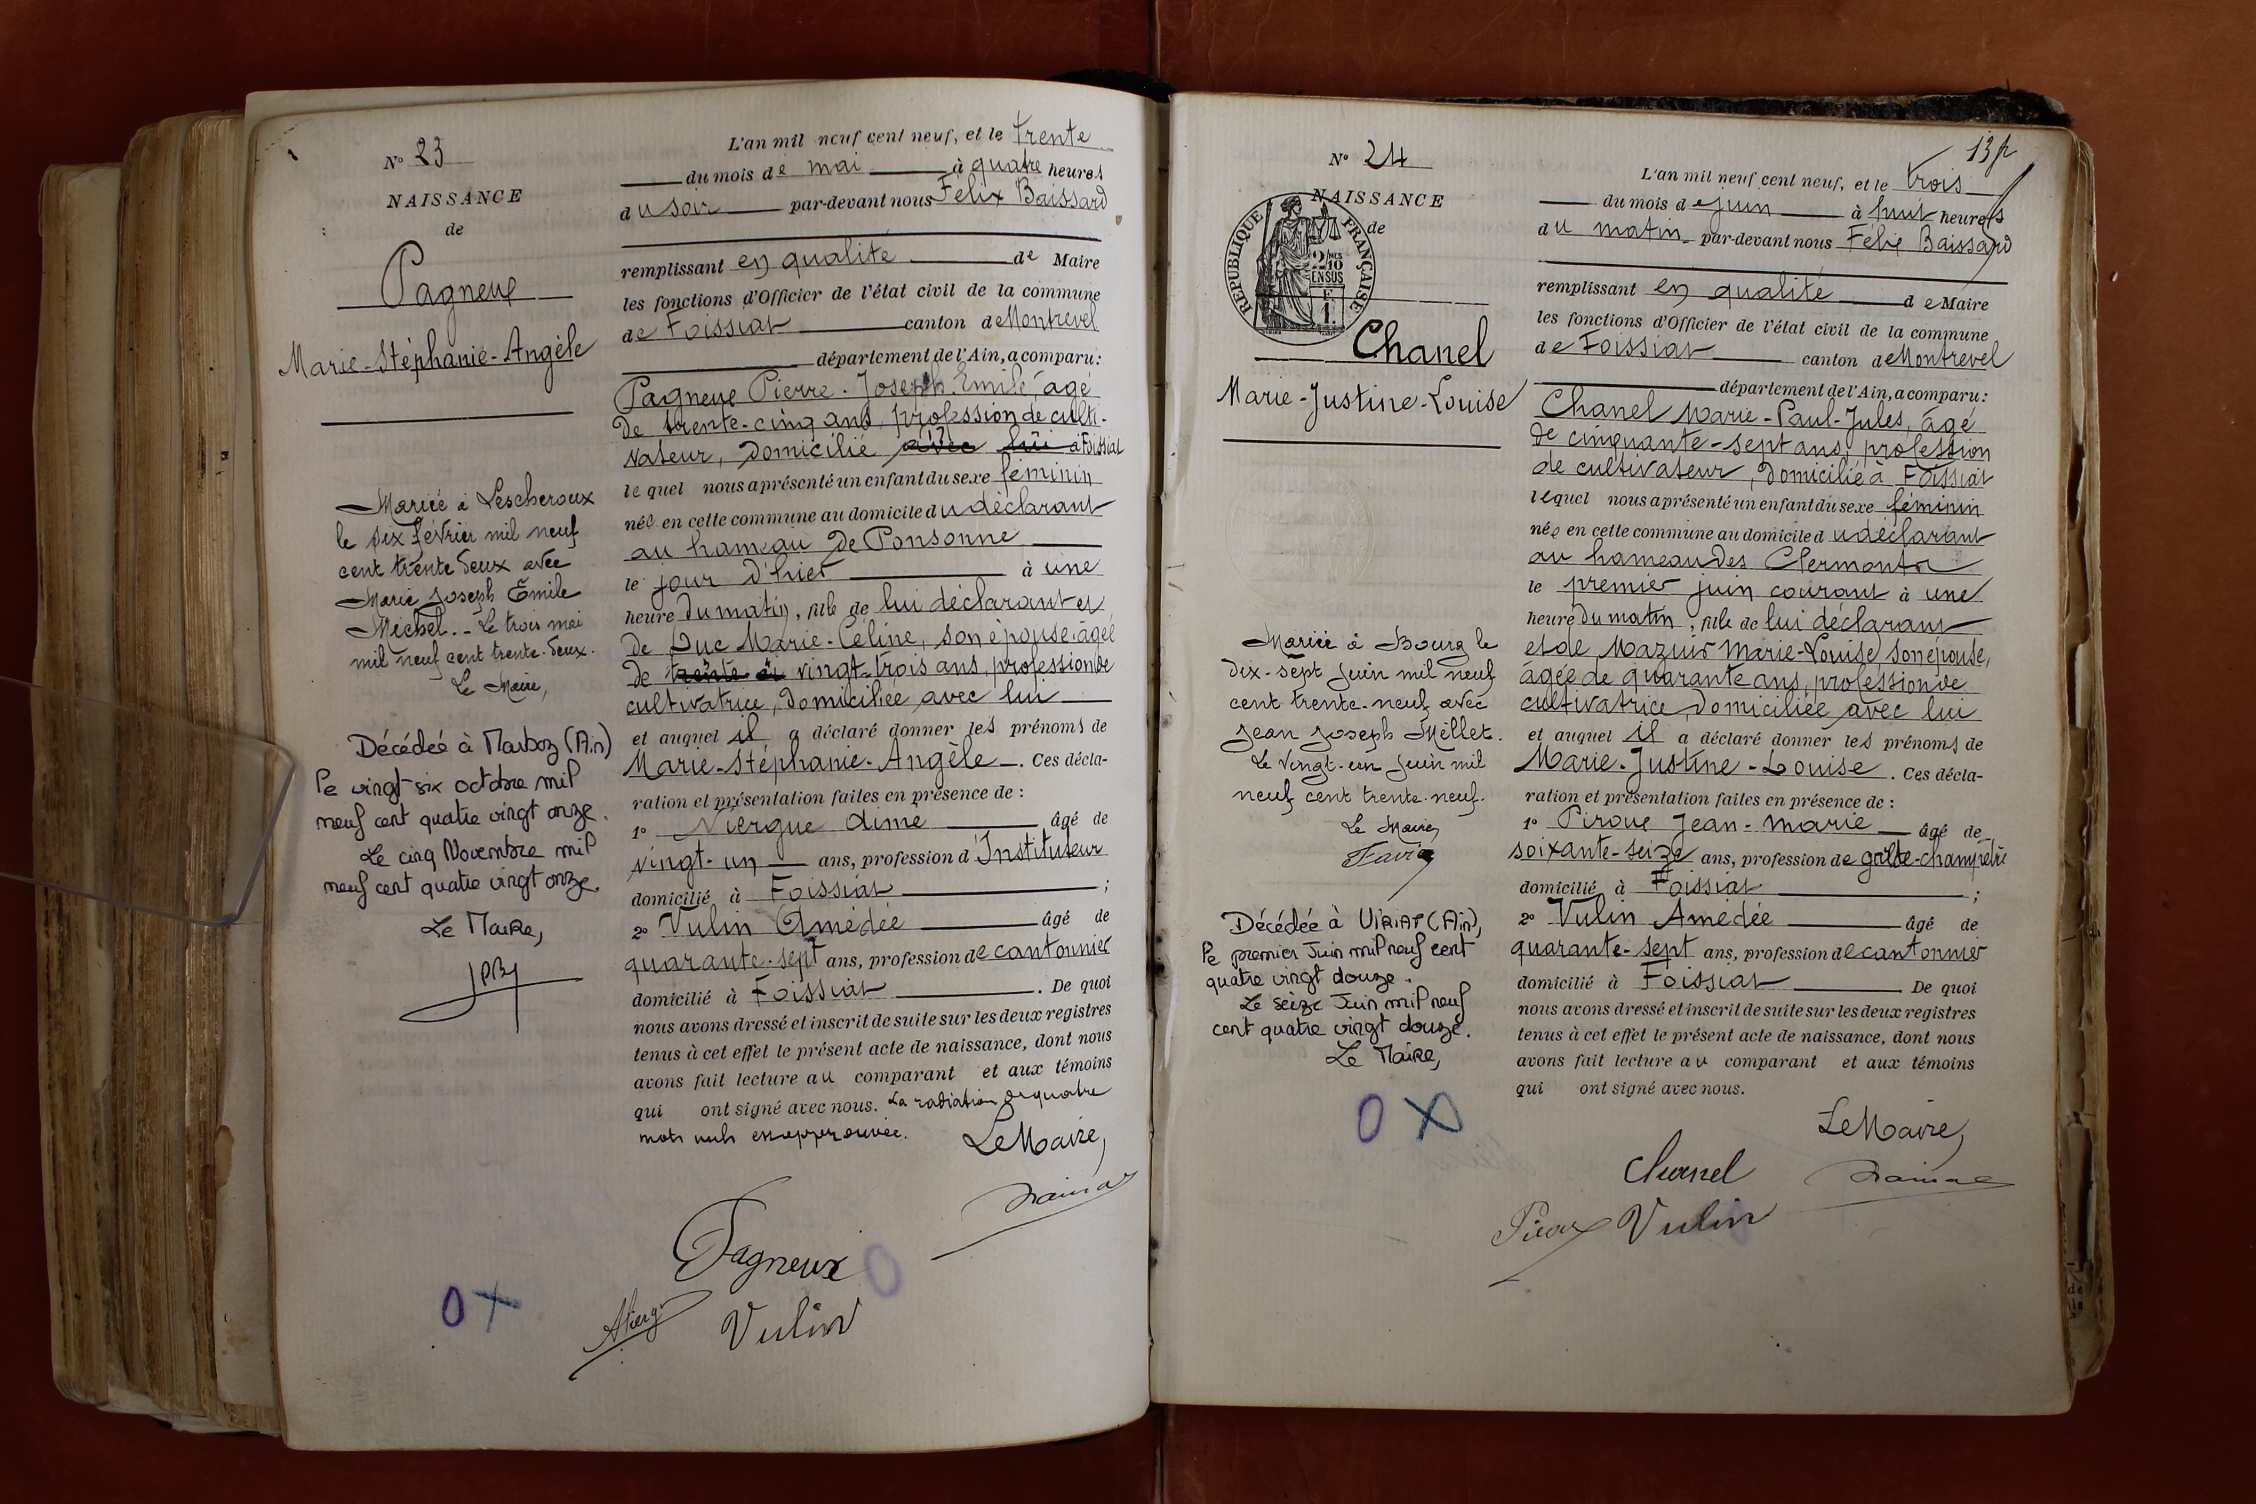 N° 23
NAISSANCE
de
Pagneux
Marie-Stéphanie-Angèle
Mariée à Lescheroux
le dix février mil neuf
cent trente deux avec
Marie Joseph Emile
Michel. - Le trois mai
mil neuf cent trente-deux.
Le Maire,
Décédée à Marboz (Ain)
le vingt six octobre mil
neuf cent quatre vingt onze.
Le cinq Novembre mil
neuf cent quatre vingt onze.
Le Maire,
O X
L'an mil neuf cent neuf, et le trente
du mois de mai à quatre heures
du soir par-devant nous Félix Baissard
remplissant en qualité de Maire
les fonctions d'Officier de l'état civil de la commune
de Foissiat canton de Montrevel
département de l'Ain, a comparu:
Pagneux Pierre-Joseph-Emile, âgé
de trente-cinq ans, profession de culti-
vateur, domicilié avec lui à Foissiat
lequel nous a présenté un enfant du sexe féminin
née en cette commune au domicile du déclarant
au hameau de Ponsonne
le jour d'hier à une
heure du matin, fille de lui déclarant et
de Duc Marie-Céline, son épouse, âgée
de trente et vingt-trois ans, profession de
cultivatrice, domiciliée avec lui
et auquel il a déclaré donner les prénoms de
Marie-Stéphanie-Angèle. Ces décla-
ration et présentation faites en présence de :
1° Niergue Aimé âgé de
vingt-un ans, profession d'Instituteur
domicilié à Foissiat ;
2° Vulin Amédée âgé de
quarante-sept ans, profession de cantonnier
domicilié à Foissiat. De quoi
nous avons dressé et inscrit de suite sur les deux registres
tenus à cet effet le présent acte de naissance, dont nous
avons fait lecture au comparant et aux témoins
qui ont signé avec nous. La radiation de quatre
mots nuls est approuvée.
Le Maire,
Pagneux
Vulin
13
N° 24
NAISSANCE
de
REPUBLIQUE FRANÇAISE
2/10
EN SUS
Chanel
Marie-Justine-Louise
Mariée à Bourg le
dix-sept Juin mil neuf
cent trente-neuf avec
Jean Joseph Mellet.
Le vingt-un Juin mil
neuf cent trente-neuf.
Le Maire,
Favier
Décédée à VIRIAT (Ain),
le premier Juin mil neuf cent
quatre vingt douze.
Le seize Juin mil neuf
cent quatre vingt douze.
Le Maire,
O X
L'an mil neuf cent neuf, et le trois
du mois de juin à huit heures
du matin par-devant nous Félix Baissard
remplissant en qualité de Maire
les fonctions d'Officier de l'état civil de la commune
de Foissiat canton de Montrevel
département de l'Ain, a comparu:
Chanel Marie-Paul-Jules, âgé
de cinquante-sept ans, profession
de cultivateur, domicilié à Foissiat
lequel nous a présenté un enfant du sexe féminin
née en cette commune au domicile du déclarant
au hameau des Clermonts
le premier juin courant à une
heure du matin, fille de lui déclarant
et de Mazuir Marie-Louise, son épouse,
âgée de quarante ans, profession de
cultivatrice, domiciliée avec lui
et auquel il a déclaré donner les prénoms de
Marie-Justine-Louise. Ces décla-
ration et présentation faites en présence de :
1° Piroux Jean-Marie âgé de
soixante-seize ans, profession de garde-champêtre
domicilié à Foissiat ;
2° Vulin Amédée âgé de
quarante-sept ans, profession de cantonnier
domicilié à Foissiat. De quoi
nous avons dressé et inscrit de suite sur les deux registres
tenus à cet effet le présent acte de naissance, dont nous
avons fait lecture au comparant et aux témoins
qui ont signé avec nous.
Le Maire,
Chanel
Piroux Vulin